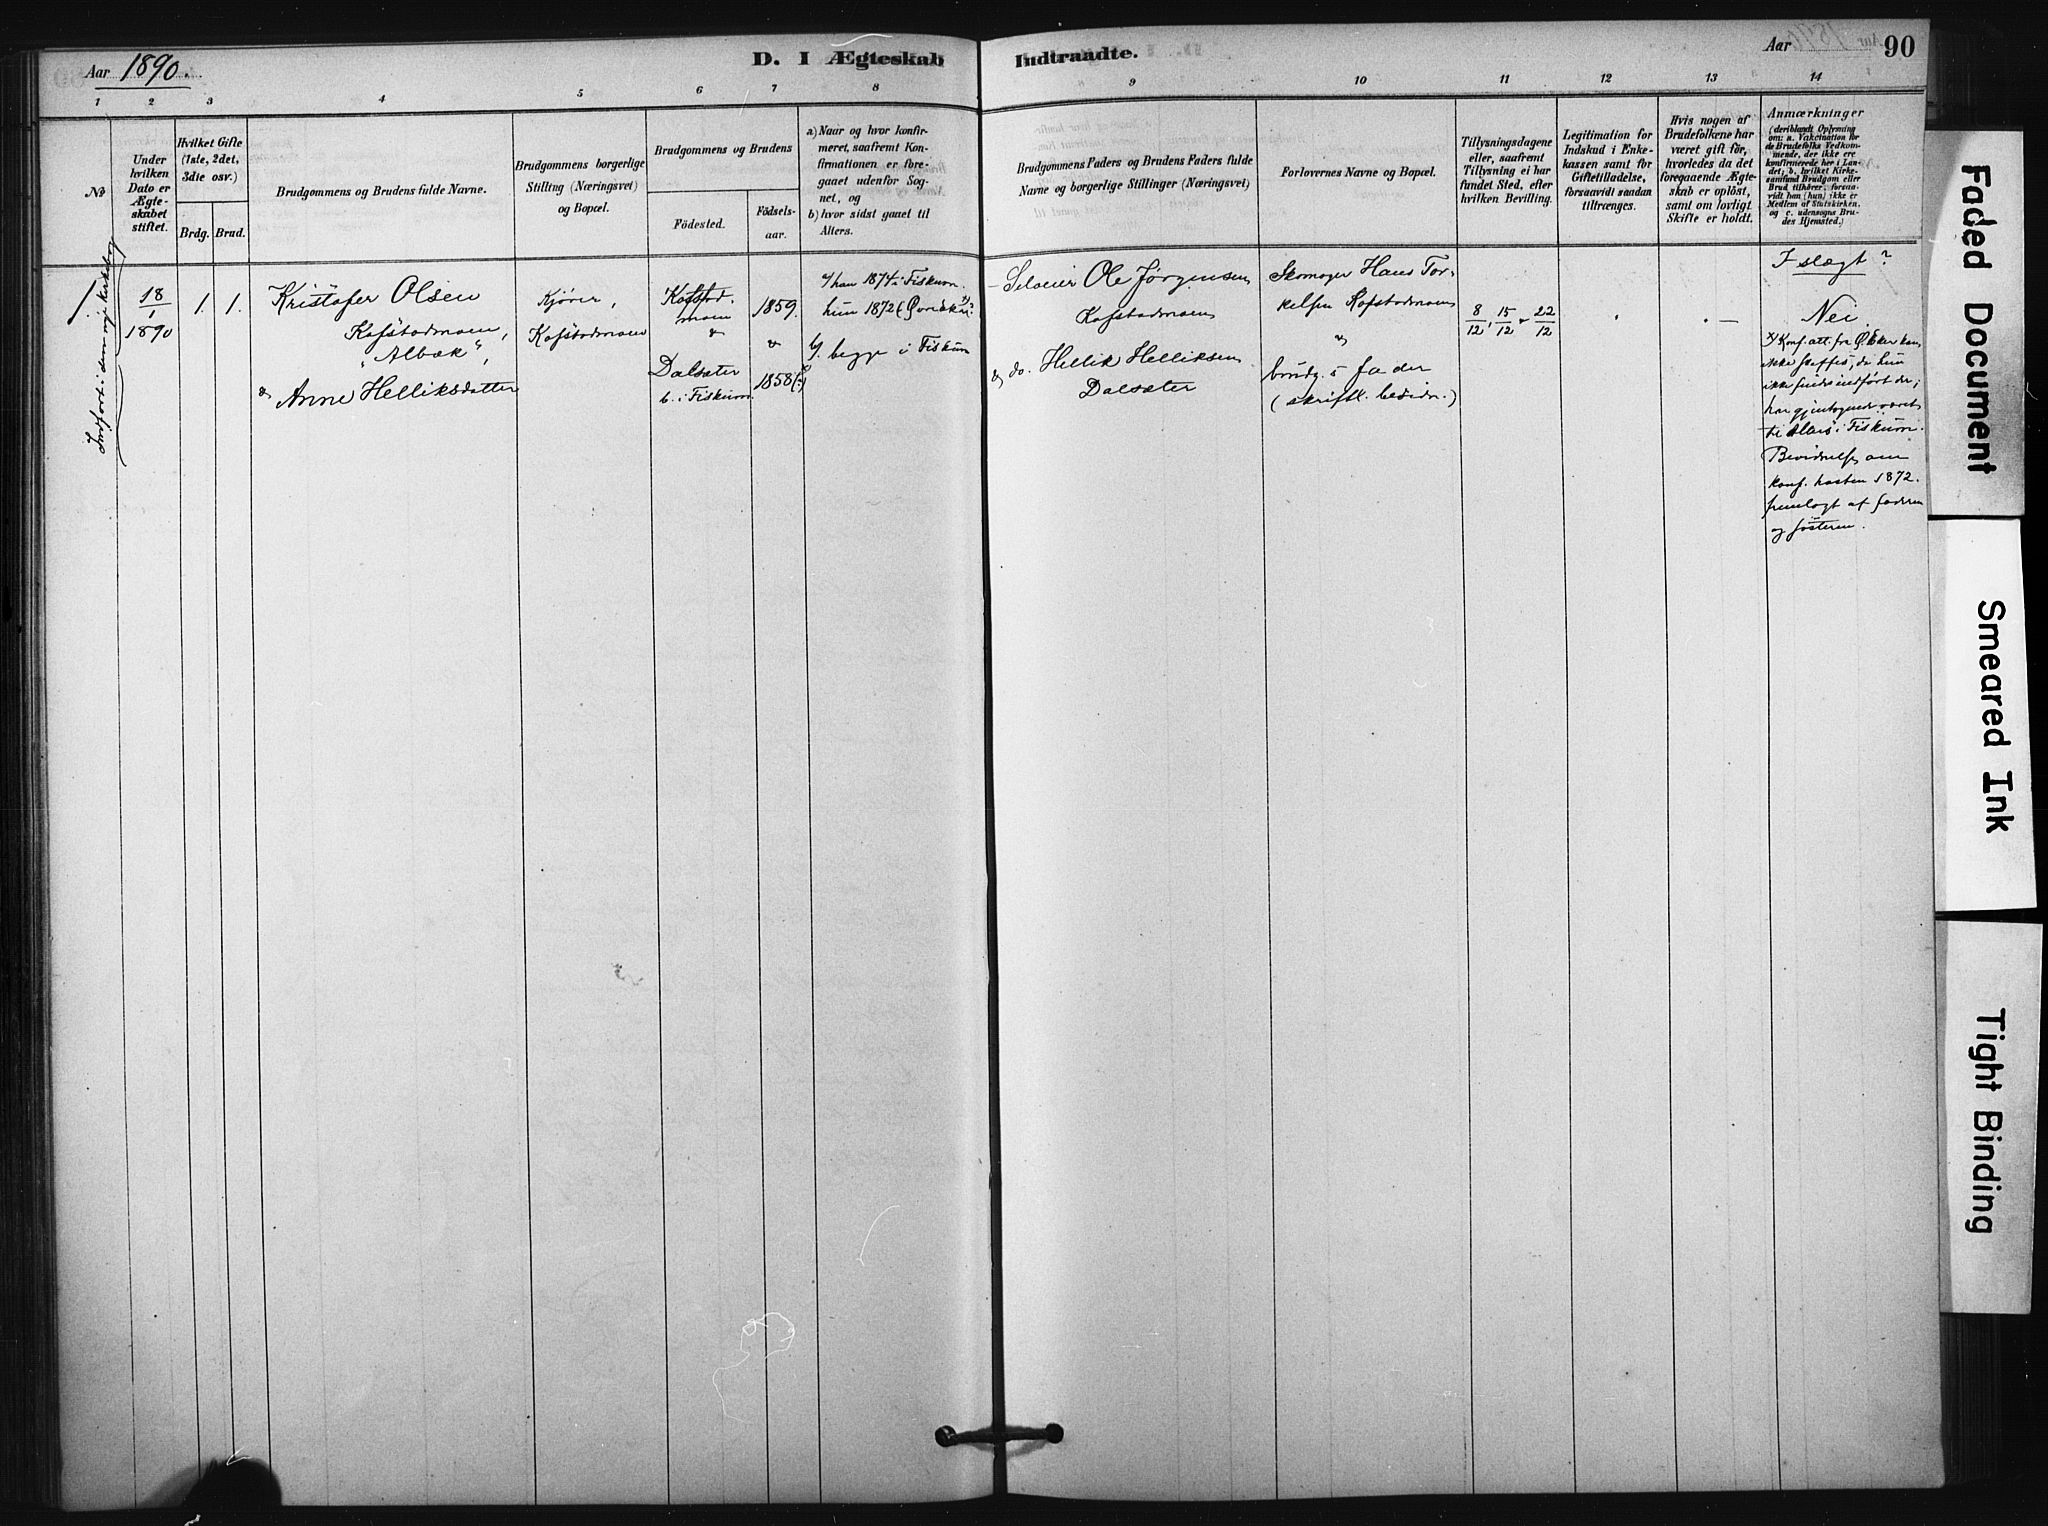 Aar 1890.
D. I Ægteskab
Indtraadte.
Aar
90
1
2
3
4
5
6
7
8
9
10
11
12
13
14
No
Under
hvilken
Dato er
Ægte-
skabet
stiftet.
Hvilket Gifte
(1ste, 2det,
3die osv.)
Brdg.
Brud.
Brudgommens og Brudens fulde Navne.
Brudgommens borgerlige
Stilling (Næringsvei)
og Bopæl.
Brudgommens og Brudens
Födested.
Födsels-
aar.
a) Naar og hvor konfir-
meret, saafremt Kon-
firmationen er fore-
gaaet udenfor Sog-
net, og
b) hvor sidst gaaet til
Alters.
Brudgommens Faders og Brudens Faders fulde
Navne og borgerlige Stillinger (Næringsvei)
Forlovernes Navne og Bopæl.
Tillysningsdagene
eller, saafremt
Tillysning ei har
fundet Sted, efter
hvilken Bevilling.
Legitimation for
Indskud i Enke-
kassen samt for
Giftetilladelse,
forsaavidt saadan
tiltrænges.
Hvis nogen af
Brudefolkene har
været gift för,
hvorledes da det
foregaaende Ægte-
skab er oplöst,
samt om lovligt
Skifte er holdt.
Anmærkninger
(deriblandt Oplysning
om: a. Vakcination for
de Brudefolks Vedkom-
mende, der ikke ere
konfirmerede her i Lan-
det; b. hvilket Kirke-
samfund Brudgom eller
Brud tilhörer, forsaa-
vidt han (hun) ikke er
Medlem af Statskirken,
og c. udensogns Bru-
des Hjemsted.)
Indført i den nye kirkebog
1
18/1
1890
1.
1.
Kristofer Olsen
Kofstadmoen,
"Albæk",
& Anne Helliksdatter
Kjører,
Kofstadmoen
Kofstad-
moen
&
Dalsæter
b. i Fiskum.
1859.
&
1858
a/ han 1874 i Fiskum.
hun 1872
b/. begge i Fiskum
Selveier Ole Jørgensen
Kofstadmoen
& do. Hellik Helliksen
Dalsæter
Skomager Hans Tor-
kelsen Kofstadmoen
&
brudg.s fader
(skriftl. bevidn.)
8/12, 15/12 & 22/12
I slægt?
Nei.
x) Konf. att. fra Ø. Eker kan
ikke skaffes, da hun
ikke findes indført der;
har gjentagende været
til Alters i Fiskum.
Bevidnelse om
konf. høsten 1872
fremlagt af faderen
og søsteren.
Faded Document
Smeared Ink
Tight Binding